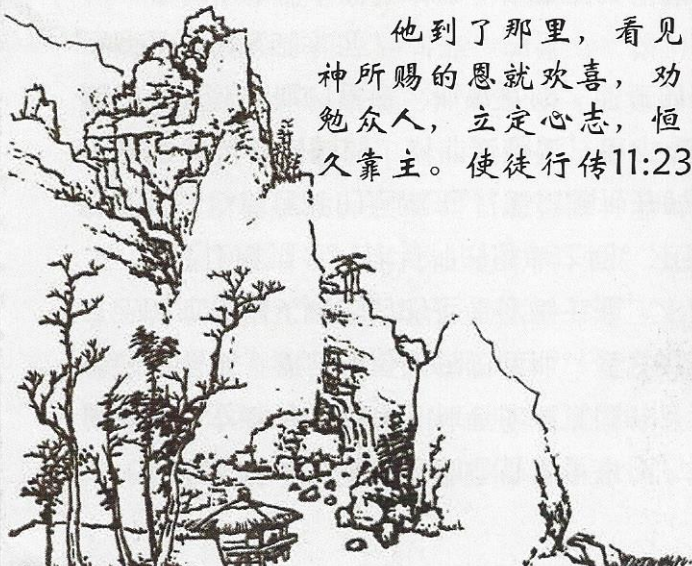 他到了那里，看见
神所赐的恩就欢喜，劝
勉众人，立定心志，恒
久靠主。使徒行传11:23